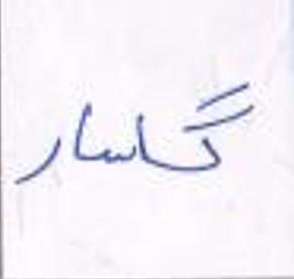 گلسار